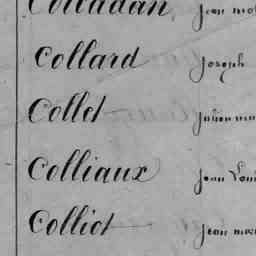 Colladan, Jean
Collard Joseph
Collet Julien
Colliaux Jean Loui
Colliot Jean